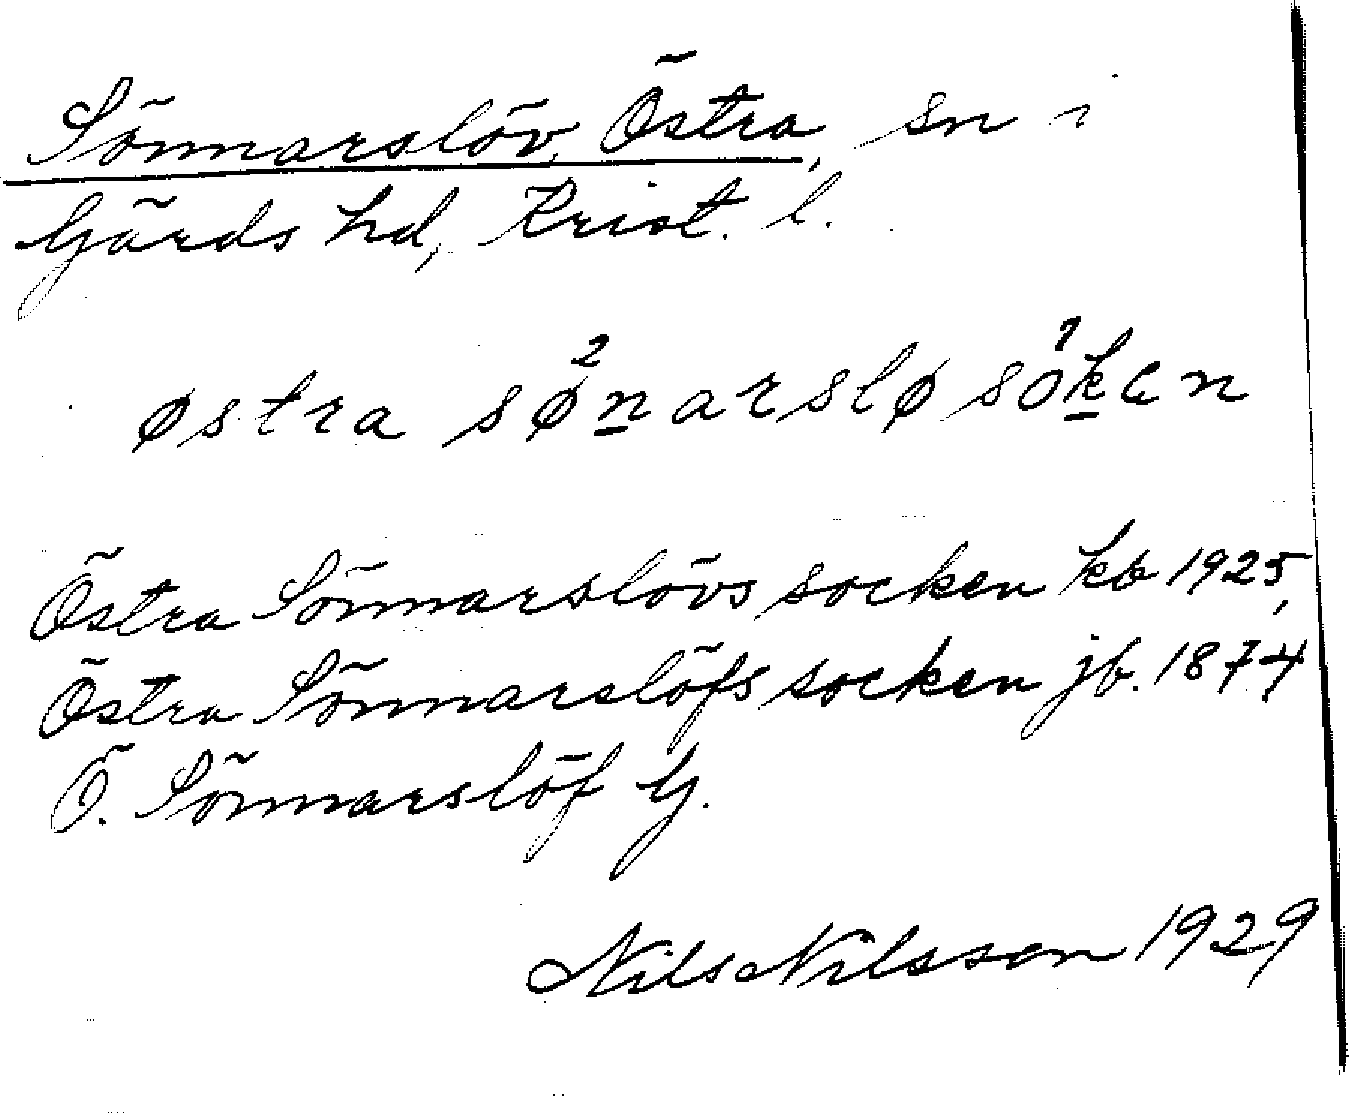 Sönnarslöv, Östra, sn i
Gärds hd, Krist. l.
østra sø²narslø so¹kan
Östra Sönnarslövs socken kb 1925,
Östra Sönnarslöfs socken jb. 1874
Ö. Sönnarslöf G.
Nils Nilsson 1929